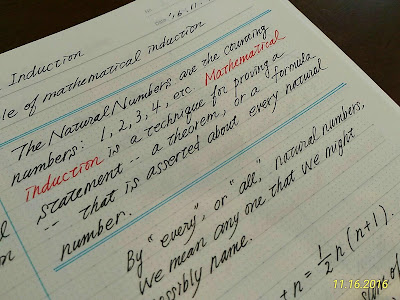 Induction
le of mathematical induction
The Natural Numbers are the counting
numbers: 1, 2, 3, 4, etc Mathematical
Induction is a technique for proving a
statement -- a theorem, or a formula
-- that is asserted about every natural
number.
By "every", or "all," natural numbers,
we mean any one that we might
possibly name.
+ n = ½ n (n+1).
11.16.2016